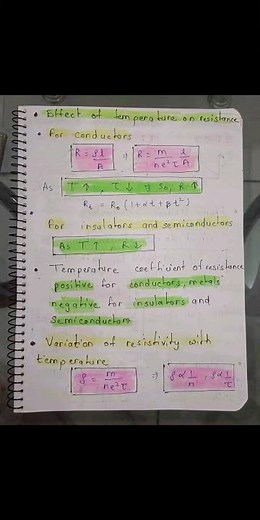 Effect of temperature on resistance
For conductors
R = ρl/A ⇒ R = m/ne²τ l/A
As T↑, τ↓ ⇒ So, R↑
Rt = R₀ (1+αt+βt²)
For insulators and semiconductors
As T↑, R↓
Temperature coefficient of resistance
positive for conductors, metals
negative for insulators and
Semiconductors
Variation of resistivity with
temperature
ρ = m/ne²τ ⇒ ρ α 1/n, ρ α 1/τ